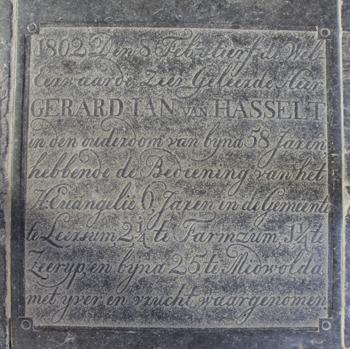 1802 Den 8 Feb: stierf de Wel
Eerwaarde Zeer Geleerde Heer
GERARD IAN van HASSELT
in den ouderdom van byna 58 Jaren
hebbende de Bediening van het
H. Euangelie 6 Jaren in de Gemeente
te Leersum 2¼ te Farmzum 1¼ te
Zeeryp en byna 25 te Midwolda
met yver en vrucht waargenomen